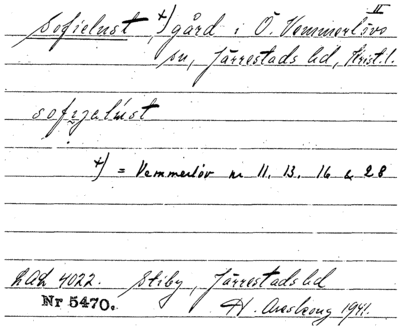 II
Sofielust, +) gård i Ö. Vemmerlövs
sn, Järrestads hd, Krist. l.
sofielúst
+) = Vemmerlöv nr 11, 13, 16 & 28
LAL 4022. Stiby, Järrestads hd
Nr 5470. 1941.